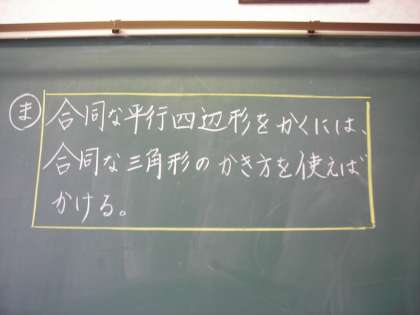 ま 合同な平行四辺形をかくには、
合同な三角形のかき方を使えば
かける。